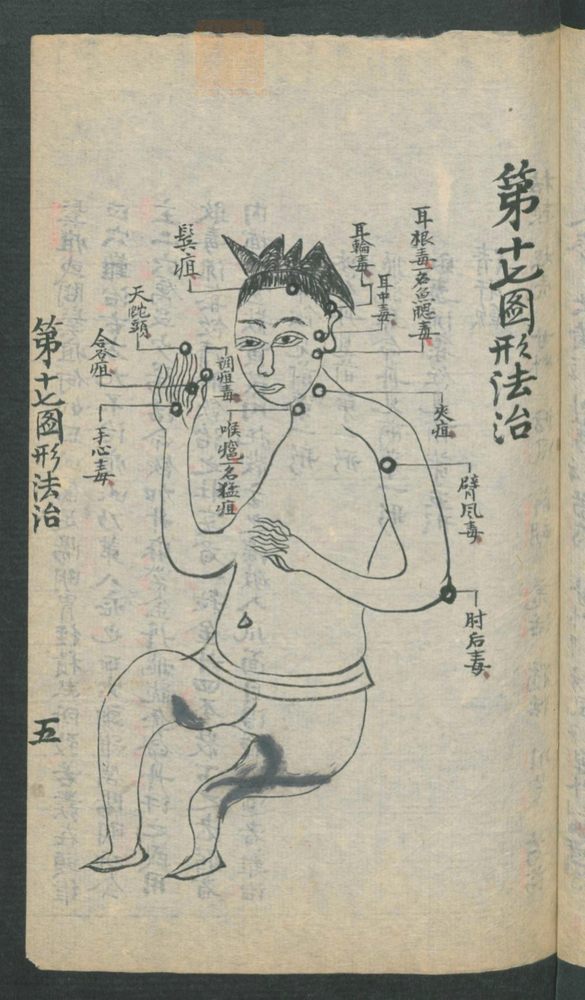 第十七圖形法治
耳根毒一名魚腮毒
耳中毒
耳輪毒
鬓疽
天蛇頭
合谷疽
手心毒
調疽毒
喉癰一名猛疽
夾疽
臂風毒
肘后毒
第十七圖形法治
五